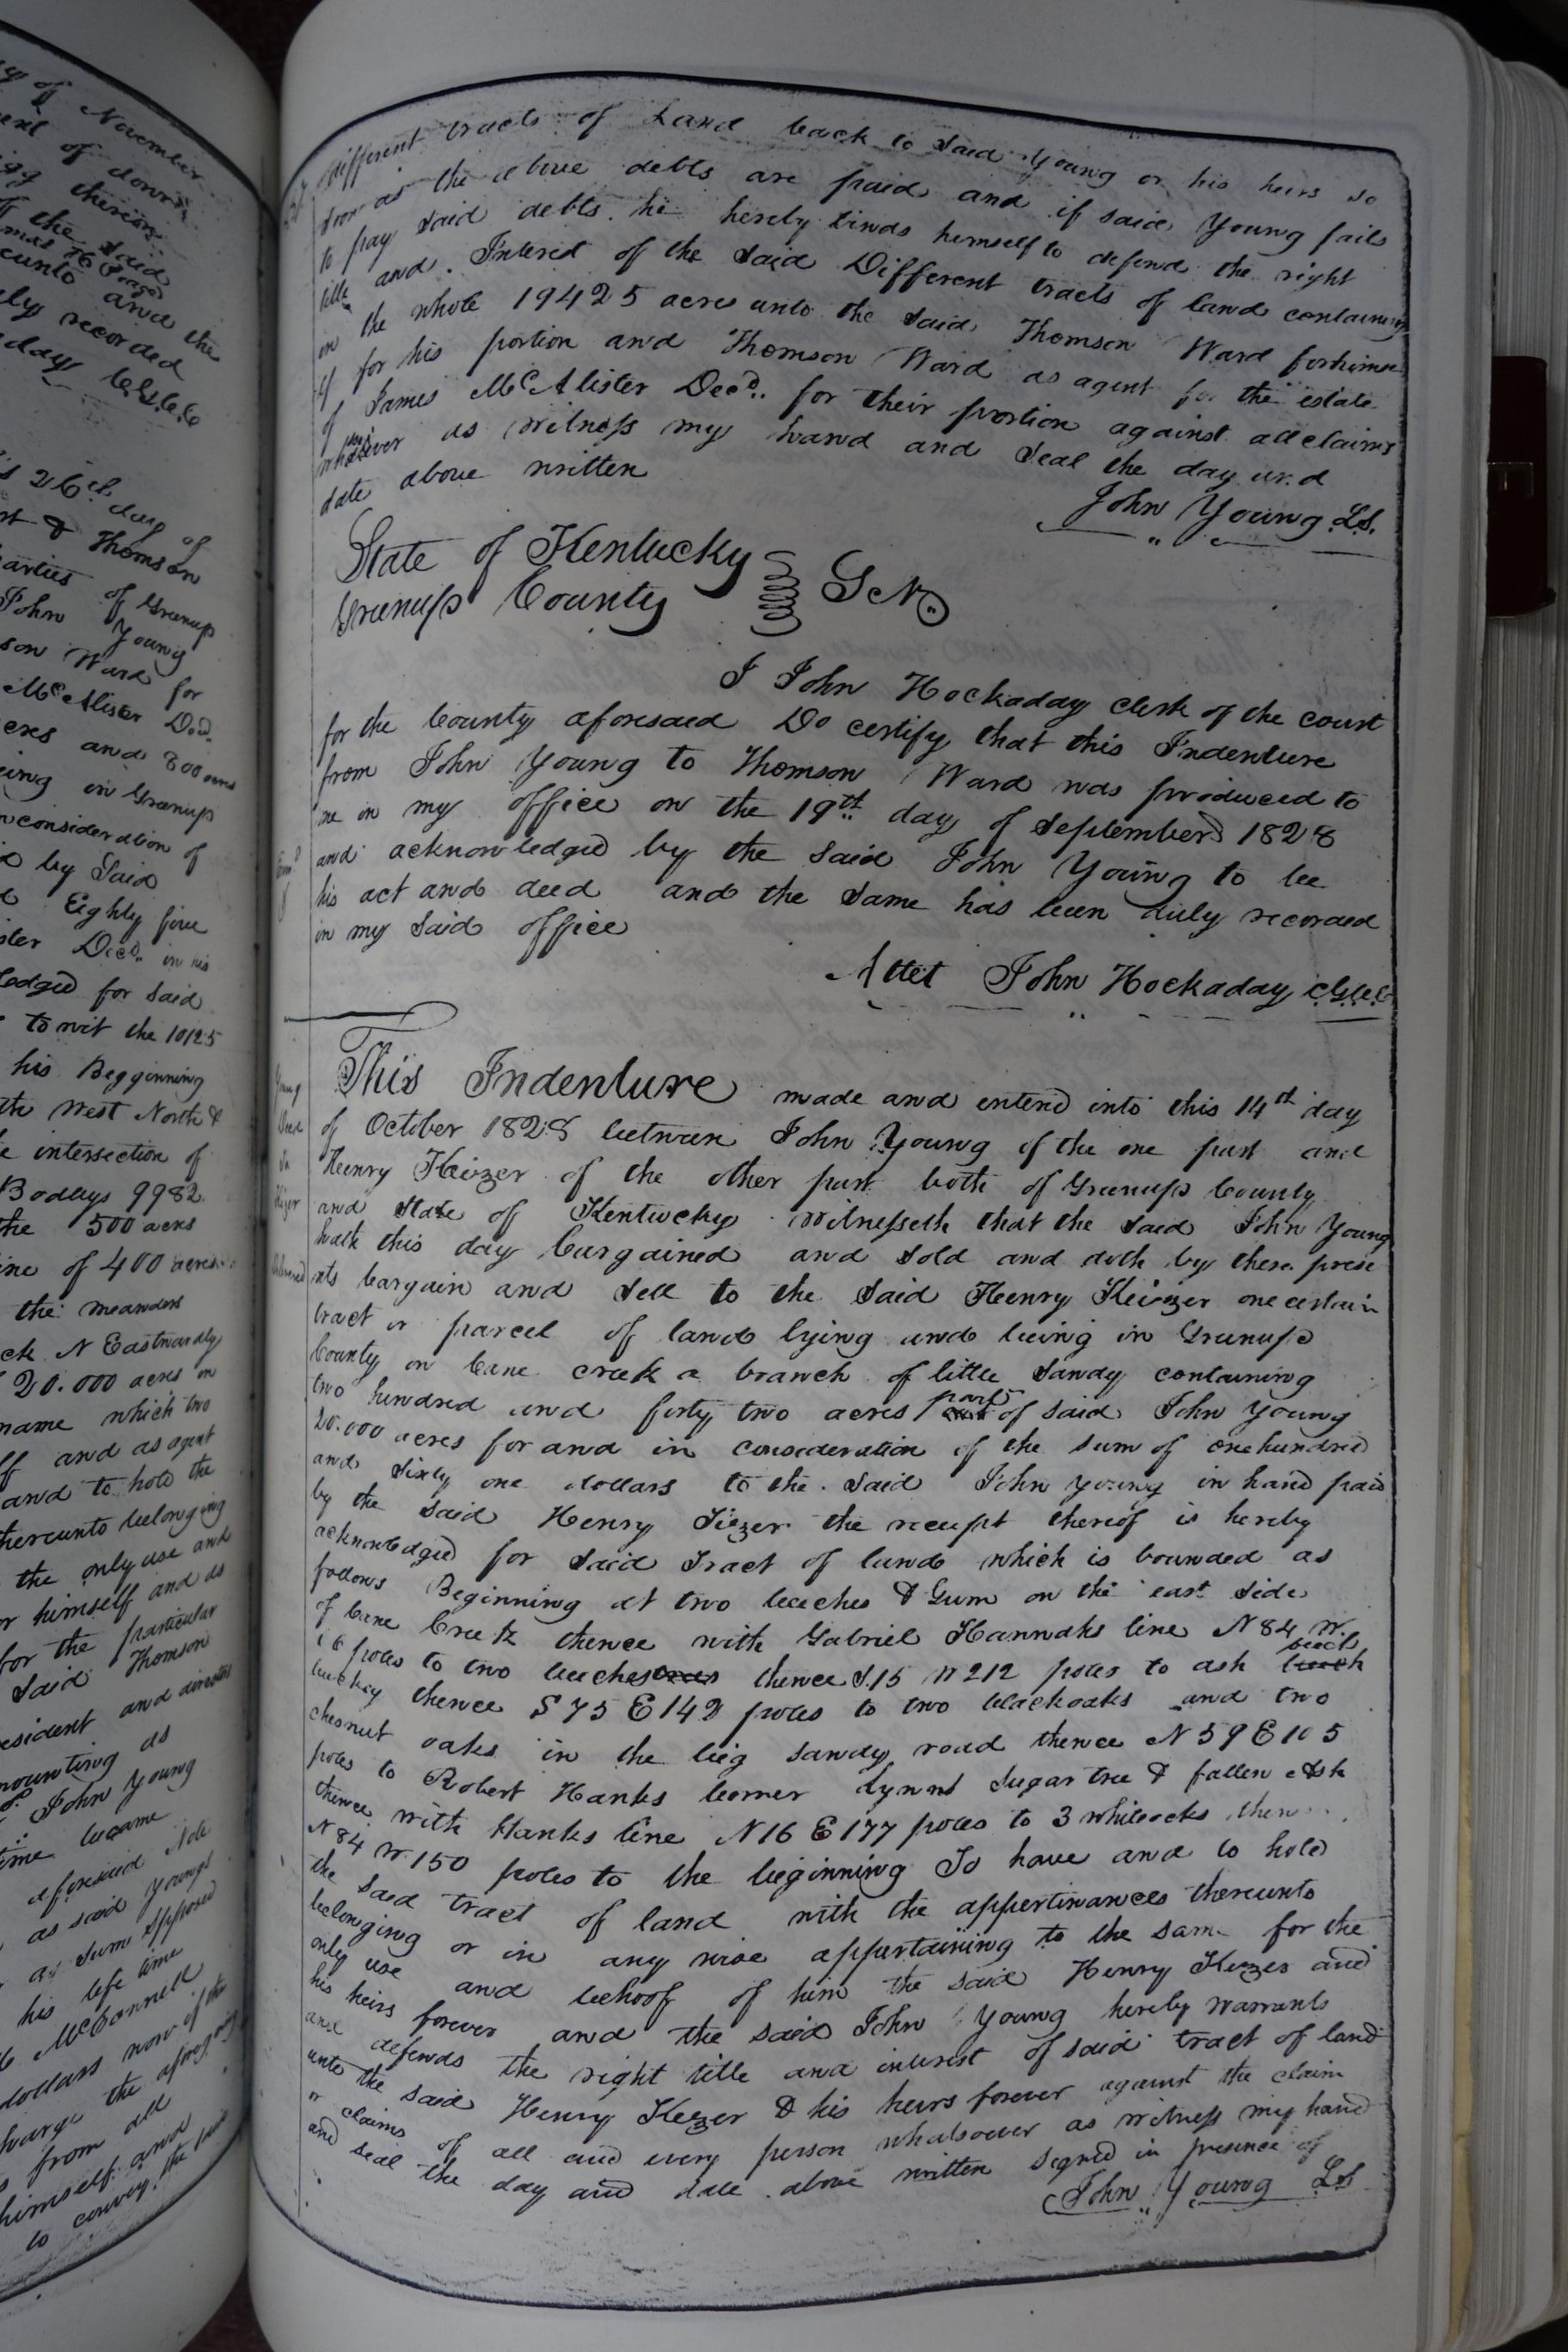 y of November
of down
therein
the said
unto and the
ly recorded
day C.G.C.C
s 26th day of
rt & Thomson
arties of Greenup
John Young
son Ward for
McAlister Decd.
cres and 800 acres
eing in Greenup
consideration of
d by Said
Eighty five
ster Decd. in his
ledged for said
to wit the 10125
his Begginning
the West North &
e intersection of
Bodleys 9982
the 500 acres
ine of 400 acres
the meanders
ck N Eastwardly
20.000 acres in
name which two
ff and as agent
and to hold the
thereunto belonging
the only use and
or himself and as
for the particular
Said Thomson
esident and
mounting as
John Young
ime became
aforesaid
as said Youngs
as Sum Supposed
his life time
McConnell
dollars now of the
harge the aforegoing
from all
himself and
to convey the
different tracts of Land back to Said Young or his heirs so
soon as the above debts are paid and if said Young fails
to pay said debts he hereby binds himself to defend the right
title and Interest of the Said Different tracts of land containing
in the whole 19425 acres unto the said Thomson Ward for himse
lf for his portion and Thomson Ward as agent for the estate
of James McAlister Decd. for their portion against all claims
whatsoever as Witness my hand and Seal the day and
date above written
John Young L.S.
State of Kentucky
Greenup County Sct.
I John Hockaday clerk of the court
for the County aforesaid Do certify that this Indenture
from John Young to Thomson Ward was produced to
me in my office on the 19th day of September 1828
and acknowledged by the said John Young to be
his act and deed and the Same has been duly recorded
in my Said office
Attet John Hockaday C.G.C.C
Young
Deed
to
Keizer
Delivered
This Indenture made and entered into this 14th day
of October 1828 between John Young of the one part and
Henry Keizer of the other part both of Greenup County
and State of Kentucky Witnesseth that the Said John Young
hath this day bargained and sold and doth by these prese
nts bargain and Sell to the Said Henry Keizer one certain
tract or parcel of land lying and being in Greenup
County on Cane creek a branch of little Sandy containing
two hundred and forty two acres part of said John Young
20.000 acres for and in consideration of the sum of one hundred
and Sixty one dollars to the Said John Young in hand paid
by the said Henry Kiezer the receipt thereof is hereby
acknowledged for Said Tract of land which is bounded as
follows Beginning at two beeches & Gum on the east side
of Cane Creek thence with Gabriel Hannahs line N 84 W.
poles to two beeches thence S. 15 W 212 poles to ash beech
buckey thence S 75 E 142 poles to two blackoaks and two
chesnut oaks in the big sandy road thence N 59 E 105
poles to Robert Hanks corner Lynns Sugar tree & fallen Ash
thence with Hanks line N 16 E 177 poles to 3 whiteocks then
N 84 W. 150 poles to the beginning To have and to hold
the said tract of land with the appertinances thereunto
belonging or in any wise appertaining to the same for the
only use and behoof of him the said Henry Keizer and
his heirs forever and the said John Young hereby warrants
and defends the right title and interest of said tract of land
unto the said Henry Kiezer & his heirs forever against the claim
or claims of all and every person whatsoever as witness my hand
and seal the day and date above written signed in presence of
John Young L.S